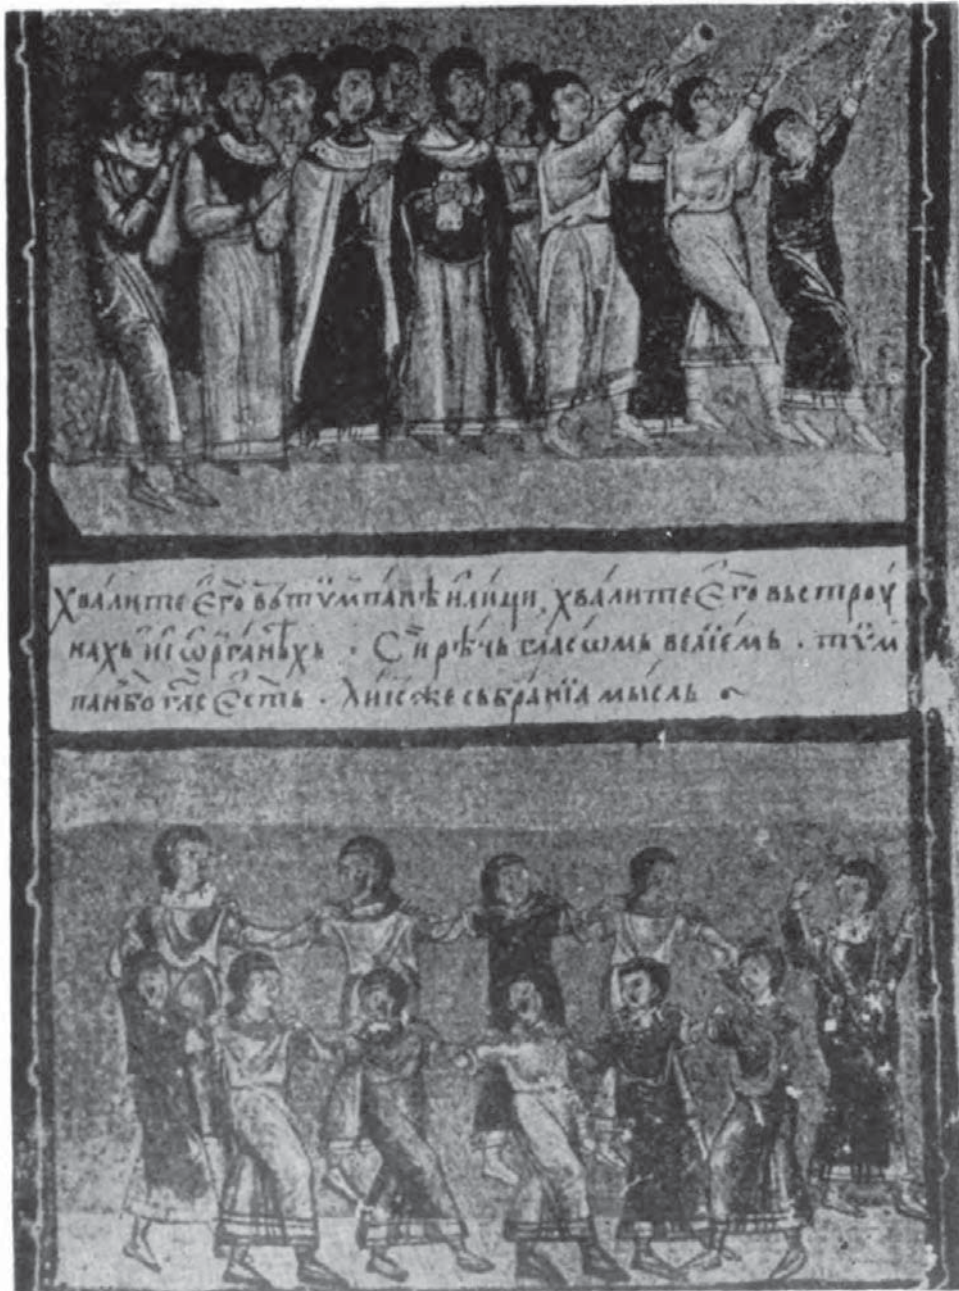 Хвали́те Є҆го̀ въ тѷмпа́нѣ и҆ ли́ци, хвали́те Є҆го̀ въ строу́
нахъ и҆ ѡ҆рга́нѣхъ · Сирѣ́чь гла́сѡмь ве́лїемь · тѷм
па́н бо гла́с є҆сть · ли́к же събра́нїа мы́сль ~